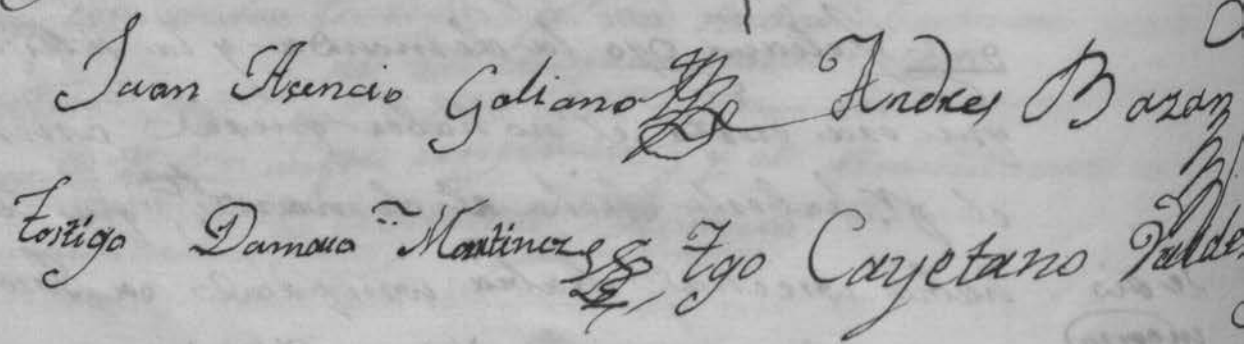 Juan Asencio Galiano Andres Bazan
Testigo Damaso Martinez Tgo Cayetano Valdes